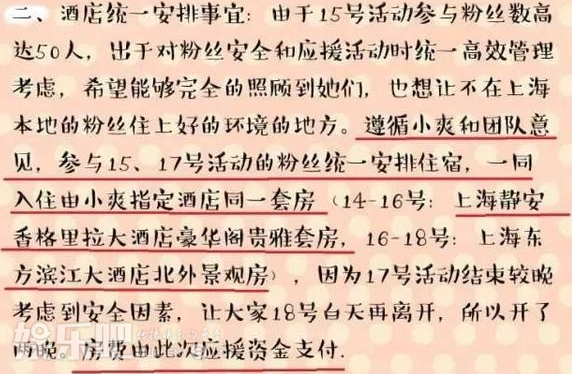 二、酒店统一安排事宜:由于15号活动参与粉丝数高
达50人,出于对粉丝安全和应援活动时统一高效管理
考虑,希望能够完全的照顾到她们,也想让不在上海
本地的粉丝住上好的环境的地方。遵循小爽和团队意
见,参与15、17号活动的粉丝统一安排住宿,一同
入住由小爽指定酒店同一套房(14-16号:上海静安
香格里拉大酒店豪华阁贵雅套房,16-18号:上海东
方滨江大酒店北外景观房),因为17号活动结束较晚
考虑到安全因素,让大家18号白天再离开,所以开了
两晚。房费由此次应援资金支付.
娱乐吧